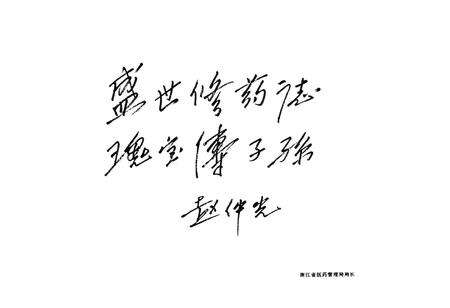 盛世修药志
瑰宝传子孙
赵仲光
浙江省医药管理局局长